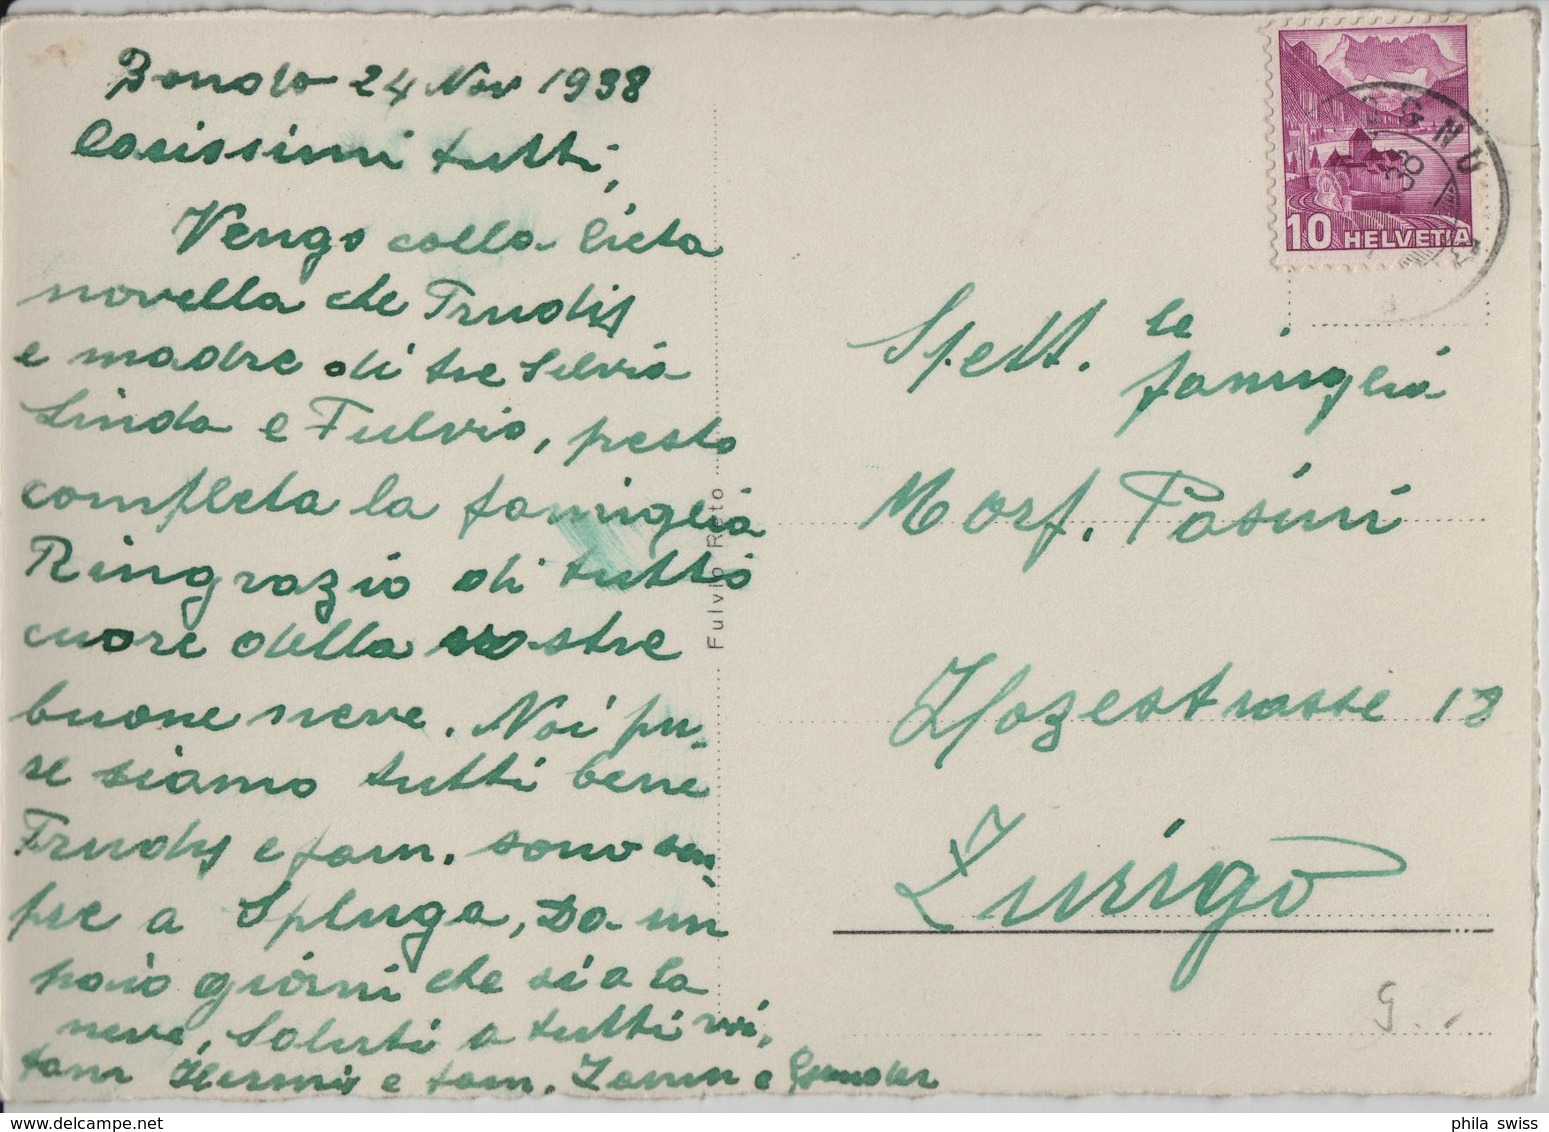 Bondo 24 Nov 1938
Carissimi tutti,
Vengo colla lieta
novella che Trudy
e madre di tre Silvia
Linda e Fulvio, presto
completa la famiglia
Ringrazio di tutto
cuore della vostre
buone neve. Noi pu-
re siamo tutti bene
Trudy e fam. sono sem
pre a Spluga, Da un
paio giorni che si a la
neve, Saluti a tutti voi,
fam e fam.
Fulvio Reto
10 HELVETIA
38
Spett. le
famiglia
Morf. Pasini
strasse 18
Zurigo
G
phila swiss